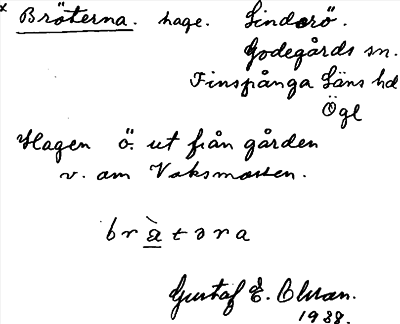 x Bröterna. hage. Linderö.
Godegårds sn.
Finspånga Läns hd
Ögl
Hagen ö. ut från gården
v. om Vaksmossen.
br à təra
Gustaf E. Olsson.
1938.